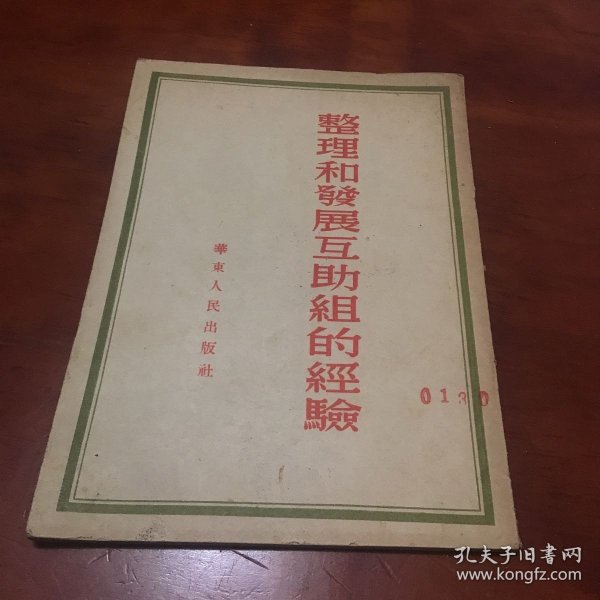 整理和發展互助組的經驗
華東人民出版社
0130
孔夫子旧書网
www.kongfz.com